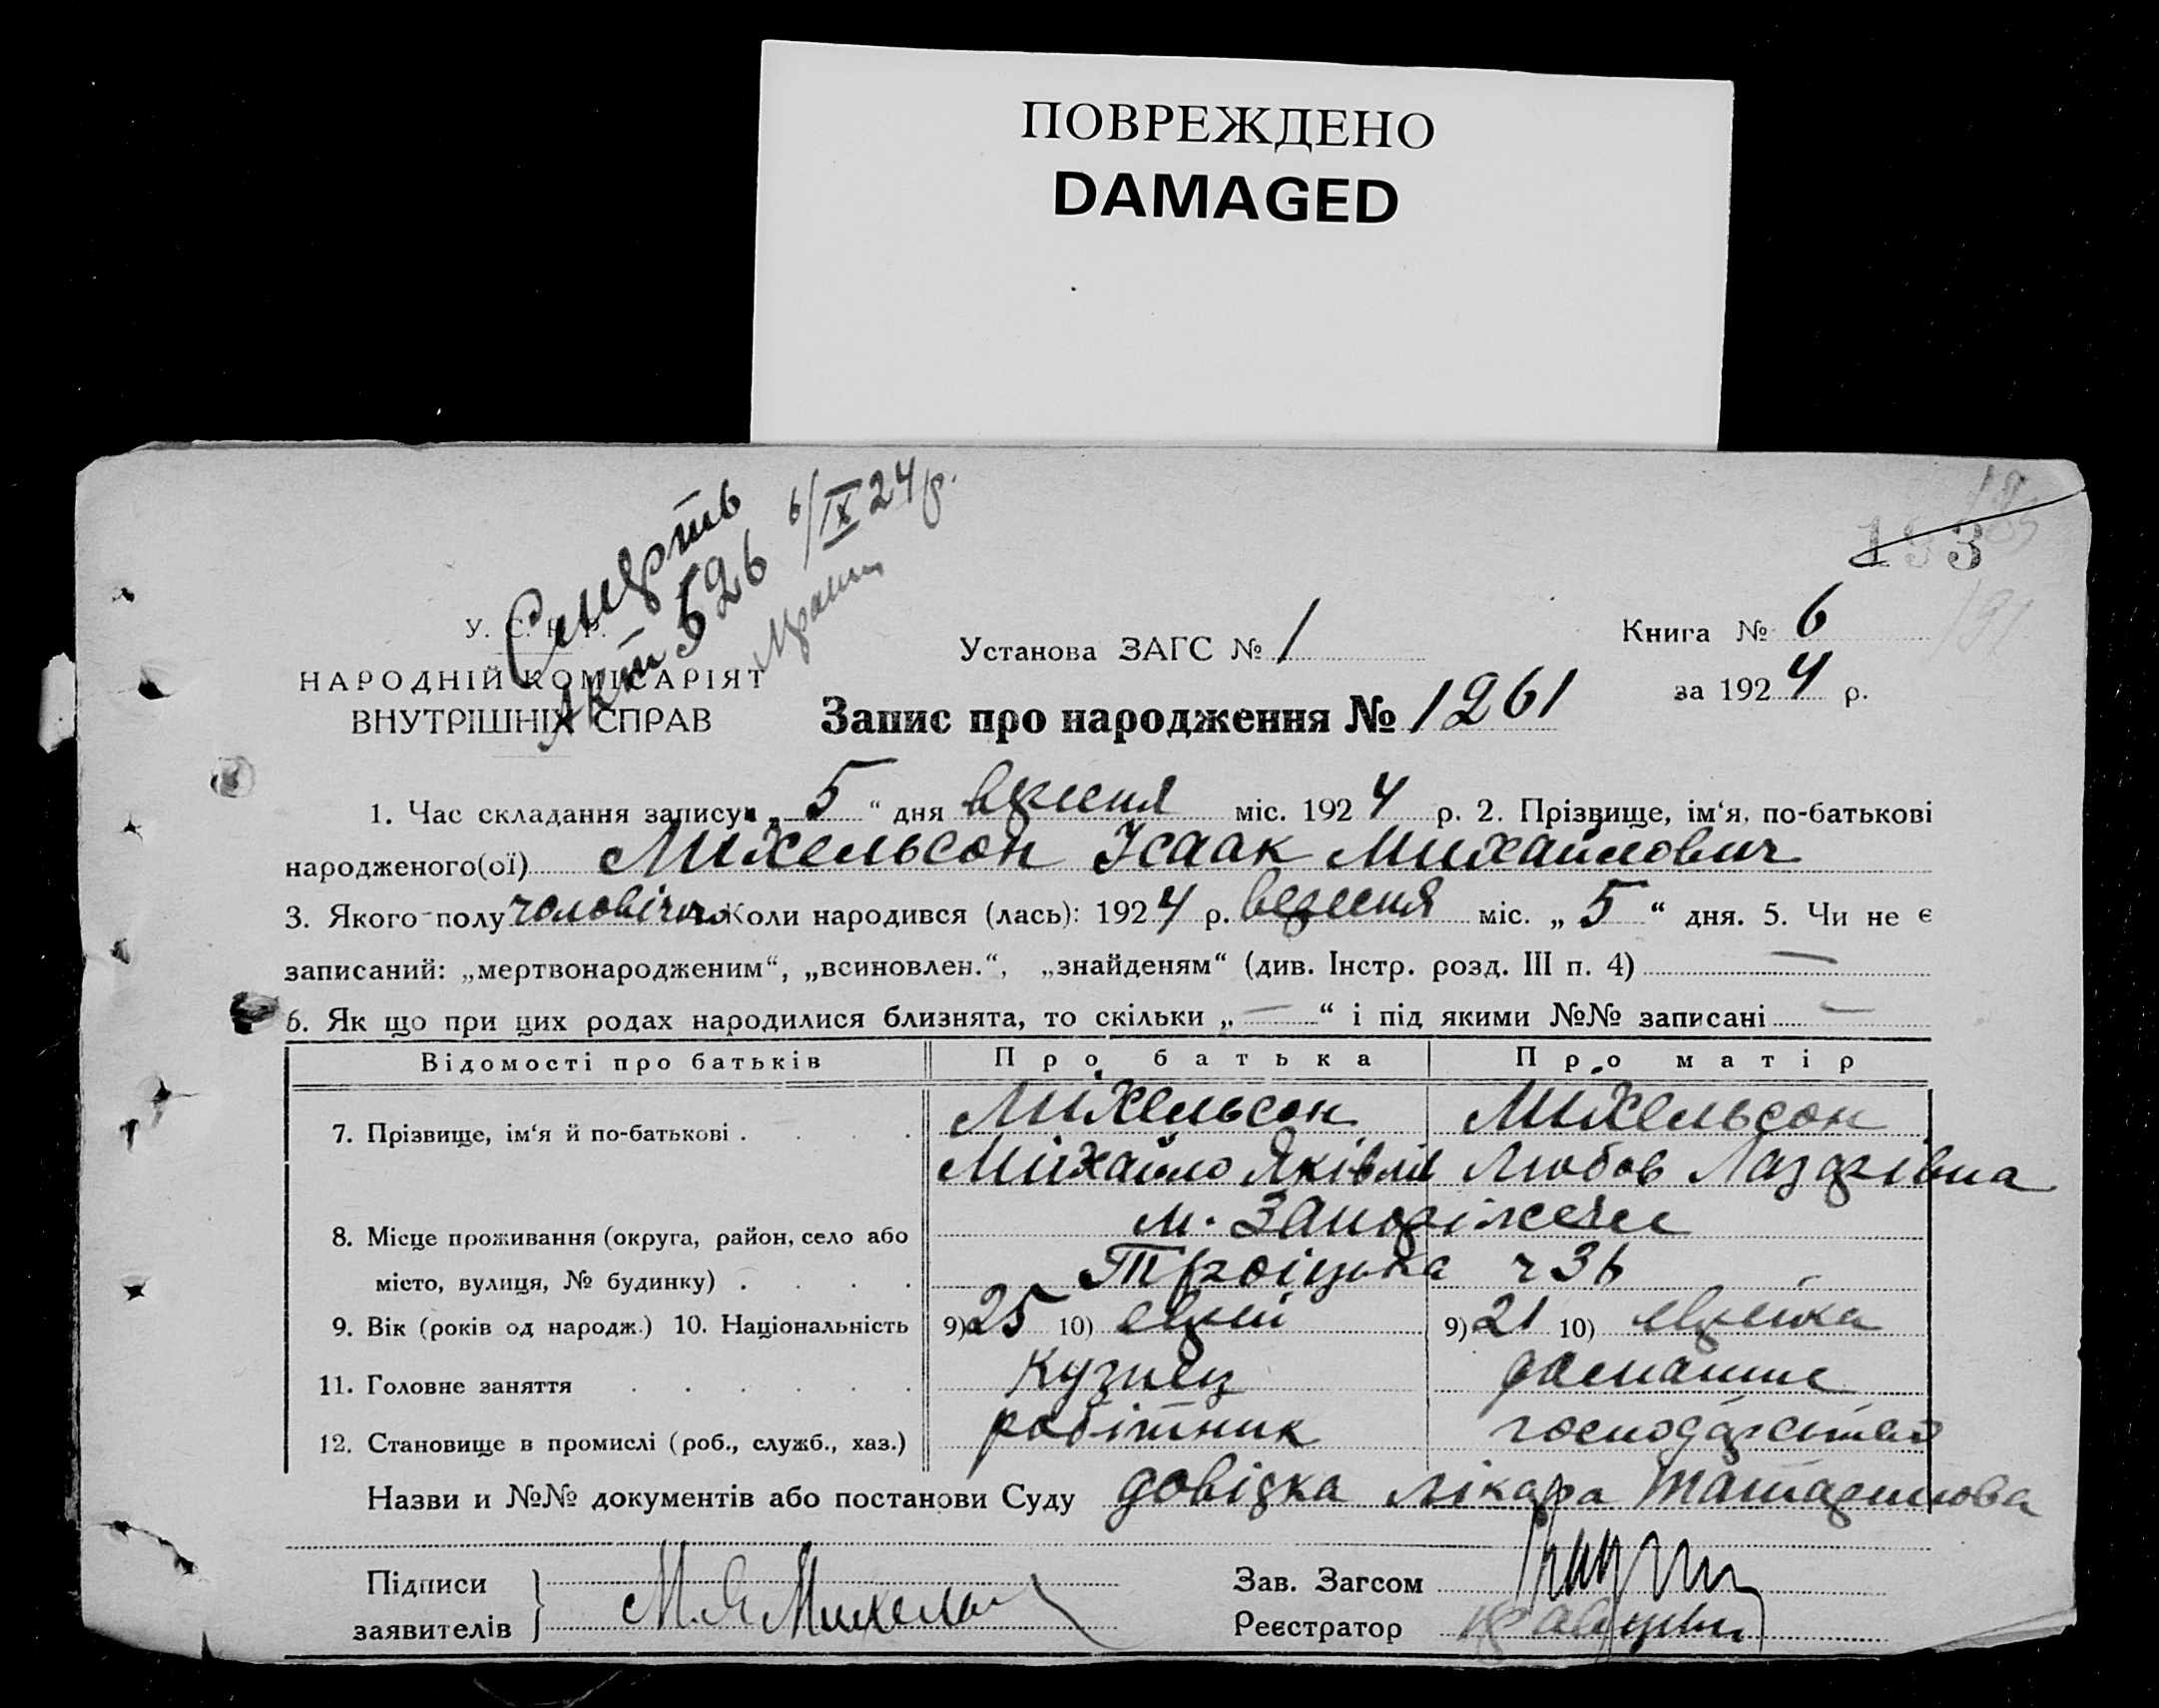 ПОВРЕЖДЕНО
DAMAGED
Смерть
акт 526 6/IX 24 р.
193
191
У. С. Р. Р.
НАРОДНІЙ КОМІСАРІЯТ
ВНУТРІШНІХ СПРАВ
Установа ЗАГС № 1
Книга № 6
за 1924 р.
Запис про народження № 1261
1. Час складання запису „ 5 “ дня вересня міс. 1924 р. 2. Прізвище, ім‘я, по-батькові
народженого(ої) Михельсон Ісаак Михайлович
3. Якого полу чоловіч. Коли народився (лась): 1924 р. вересня міс. „ 5 “ дня. 5. Чи не є
записаний: „мертвонародженим“, „всиновлен.“, „знайденям“ (див. Інстр. розд. III п. 4) —
6. Як що при цих родах народилися близнята, то скільки „ — “ і під якими №№ записані —
Відомості про батьків Про батька Про матір
7. Прізвище, ім‘я й по-батькові . . . . Михельсон Михельсон
Михайло Яківлів Любов Лазарівна
8. Місце проживання (округа, район, село або м. Запоріжжя
місто, вулиця, № будинку) . . . . Троіцька ч 36
9. Вік (років од народж.) 10. Національність 9) 25 10) єврей 9) 21 10) єврейка
11. Головне заняття . . . . . . Кузнец домашнє
12. Становище в промислі (роб., служб., хаз.) робітник господарство
Назви и №№ документів або постанови Суду довідка лікара
Підписи
заявителів } М. Я Михельсон
Зав. Загсом
Реєстратор